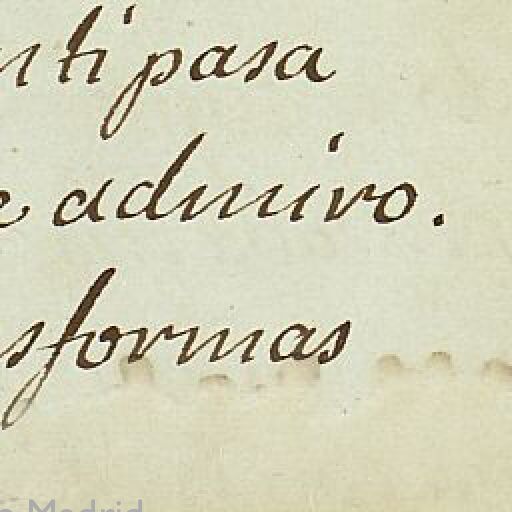 n ti pasa
e admiro.
sformas
o Madrid